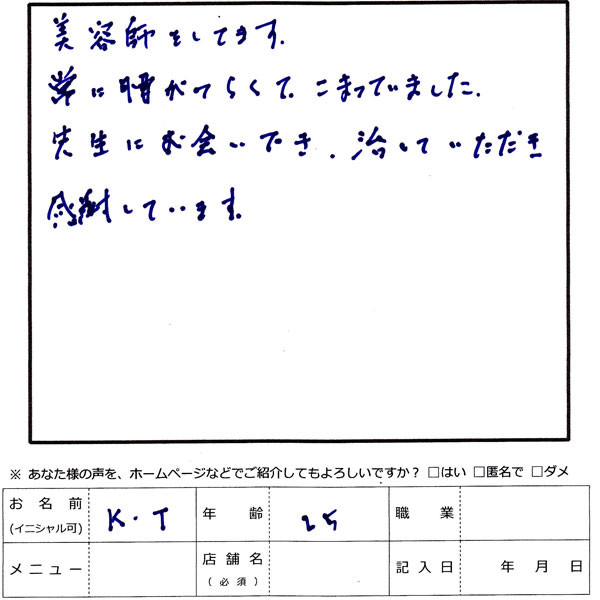 美容師をしてます.
常に腰がつらくて、こまっていました.
先生にお会いでき、治していただき
感謝しています.
※ あなた様の声を、ホームページなどでご紹介してもよろしいですか？ □はい □匿名で □ダメ
お名前 (イニシャル可) K・T 年齢 25 職業
メニュー 店舗名 (必須) 記入日 年 月 日